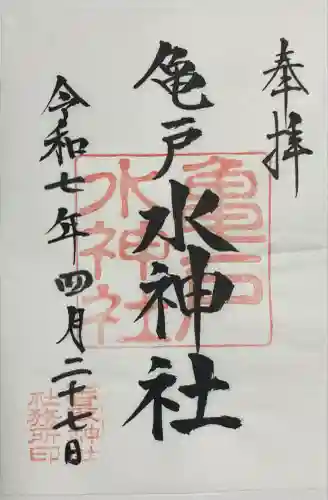 奉拝
亀戸水神社
令和七年四月二十七日
亀戸
水神社
社務所印